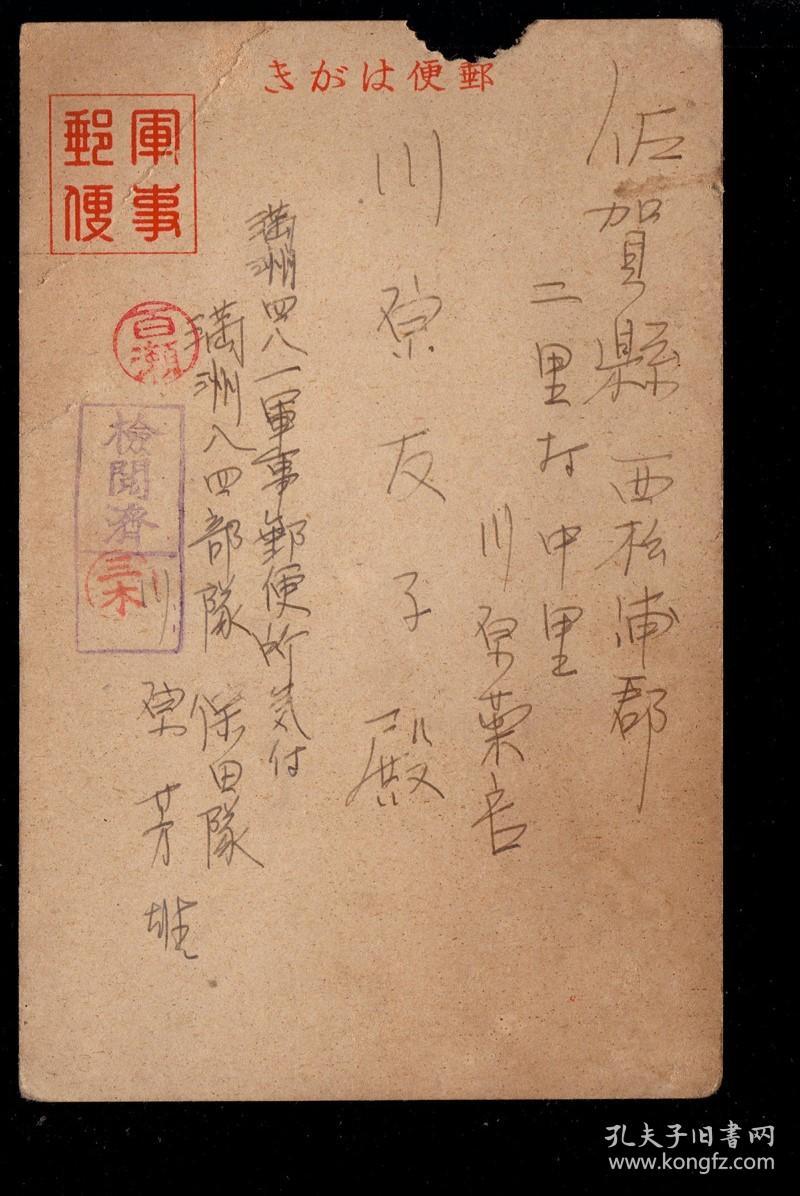 きがは便郵
軍事
郵便
佐賀縣西松浦郡
二里村中里
川原栗吉
川原友子殿
満洲四八一軍事郵便所気付
満洲八四部隊保田隊
川原芳雄
百瀬
檢閲濟
三木
孔夫子旧书网
www.kongfz.com